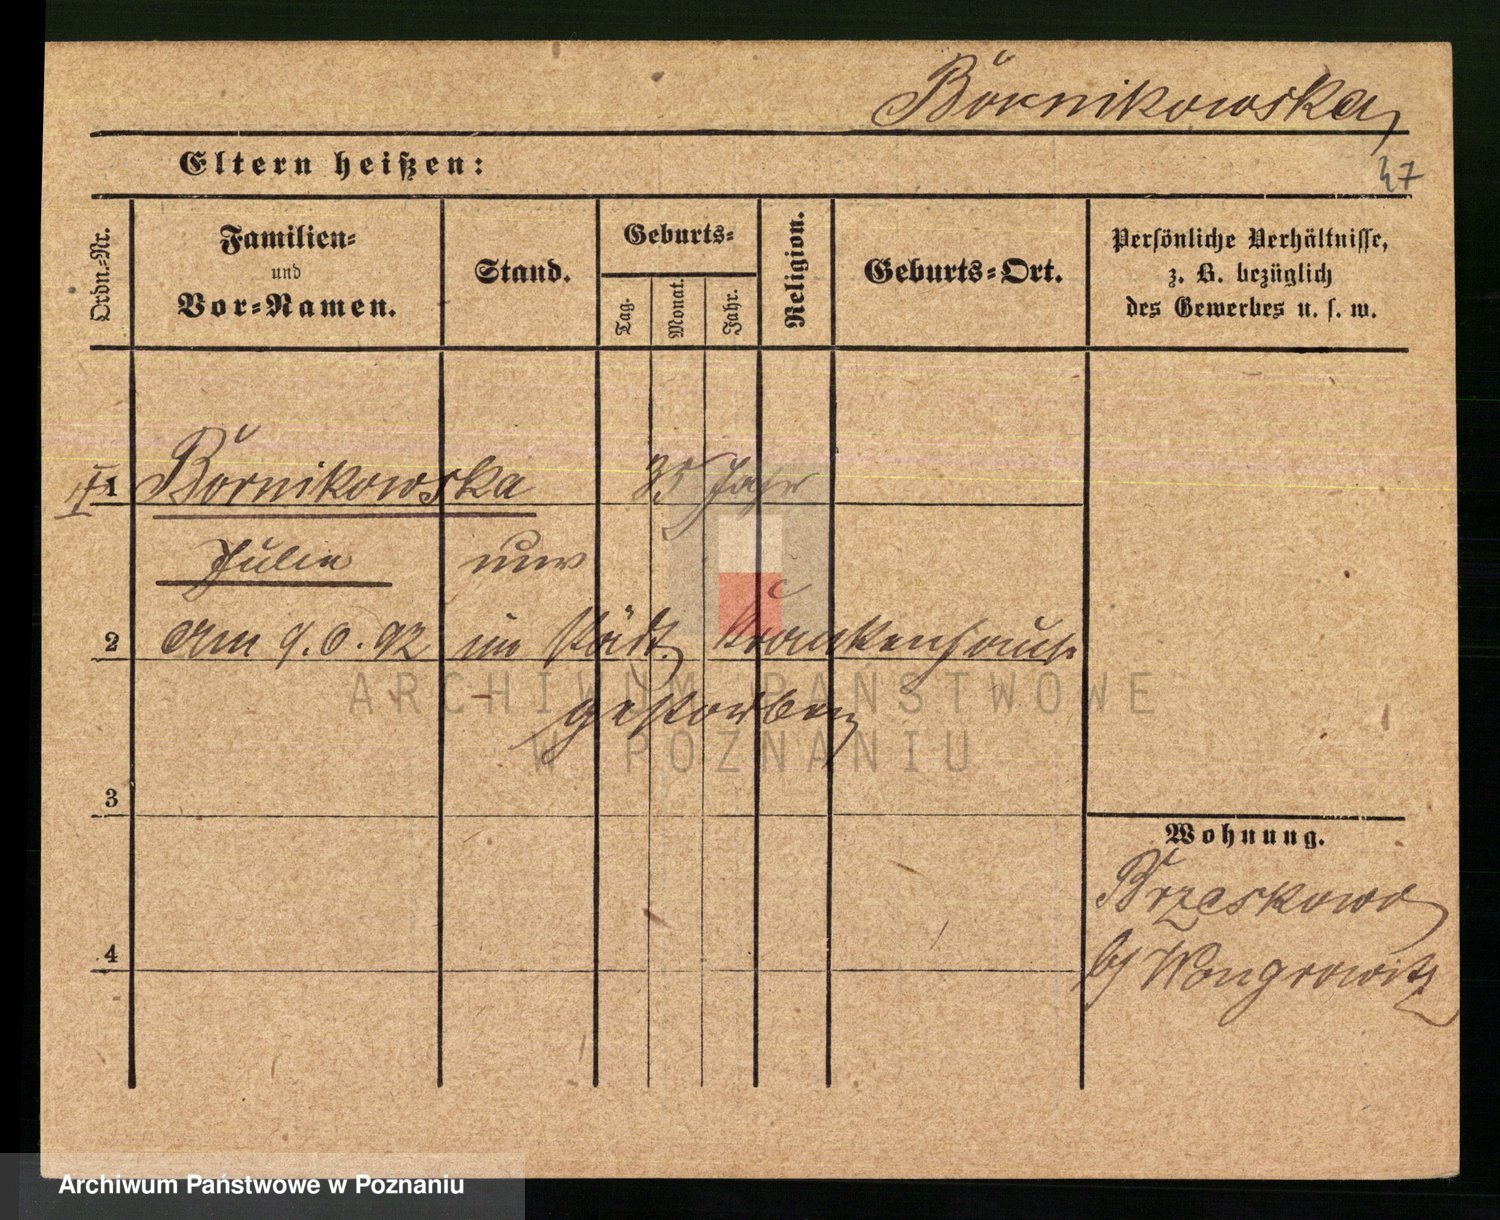 Börnikowska
47
Eltern heißen:
Ordn.-Nr.
Familien-
und
Vor-Namen.
Stand.
Geburts-
Tag.
Monat.
Jahr.
Religion.
Geburts-Ort.
Persönliche Verhältnisse,
z. B. bezüglich
des Gewerbes u. s. w.
1 Börnikowska 35 Jahr
Julie unv
2 Am 9.6.92 im städt. Krankenhause
gestorben
ARCHIWUM PAŃSTWOWE
W POZNANIU
3
Wohnung.
Brzeskowo
b/ Wongrowitz
4
Archiwum Państwowe w Poznaniu